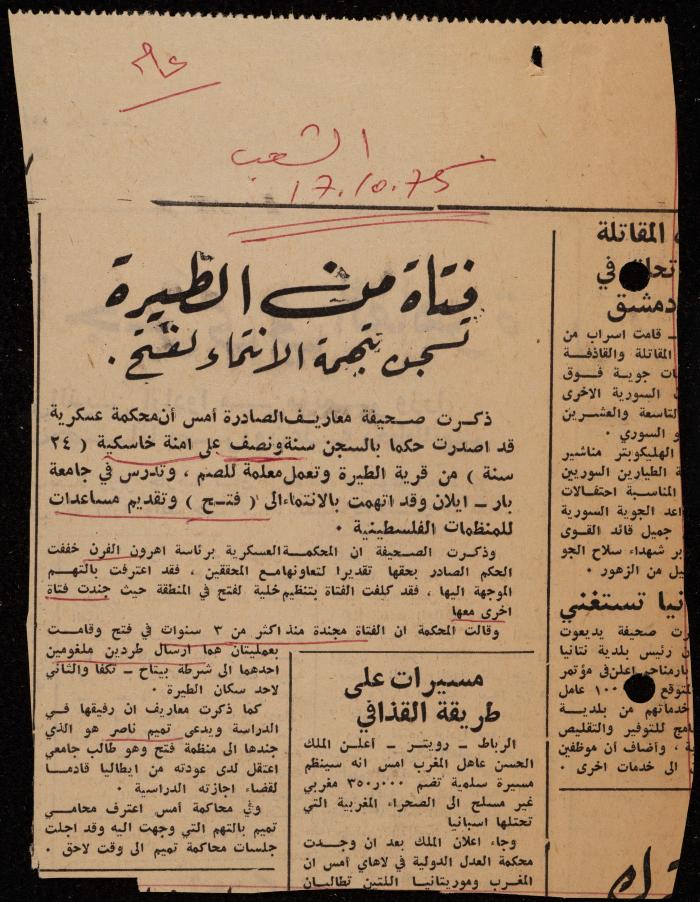 الشعب
17.10.75
فتاة من الطيرة
تسجن بتهمة الانتماء لفتح .
ذكرت صحيفة معاريف الصادرة أمس أن محكمة عسكرية
قد اصدرت حكما بالسجن سنة ونصف على امنة خاسكية ( ٢٤
سنة ) من قرية الطيرة وتعمل معلمة للصم ، وتدرس في جامعة
بار ــ ايلان وقد اتهمت بالانتماء الى ( فتـح ) وتقديم مساعدات
للمنظمات الفلسطينية ٠
وذكرت الصحيفة ان المحكمة العسكرية برئاسة اهرون الفرن خففت
الحكم الصادر بحقها تقديرا لتعاونها مع المحققين ، فقد اعترفت بالتهم
الموجهة اليها ، فقد كلفت الفتاة بتنظيم خلية لفتح في المنطقة حيث جندت فتاة
اخرى معها
وقالت المحكمة ان الفتاة مجندة منذ اكثر من ٣ سنوات في فتح وقامت
بعمليتان هما ارسال طردين ملغومين
احدهما الى شرطة بيتاح ــ تكفا والثاني
لاحد سكان الطيرة ٠
كما ذكرت معاريف ان رفيقها في
الدراسة ويدعى تميم ناصر هو الذي
جندها الى منظمة فتح وهو طالب جامعي
اعتقل لدى عودته من ايطاليا قادمـا
لقضاء اجازته الدراسية ٠
وفي محاكمة أمس اعترف محامي
تميم بالتهم التي وجهت اليه وقد اجلت
جلسات محاكمة تميم الى وقت لاحق ٠
مسيرات على
طريقة القذافي
الرباط ــ رويتر ــ أعلن الملك
الحسن عاهل المغرب امس انه سينظم
مسيرة سلمية تضم ٣٥٠ر٠٠٠ مغربي
غير مسلح الى الصحراء المغربية التي
تحتلها اسبانيا
وجاء اعلان الملك بعد ان وجـدت
محكمة العدل الدولية في لاهاي أمس ان
المغرب وموريتانيا اللتين تطالبان
المقاتلة
في
دمشق
ــ قامت اسراب من
المقاتلة والقاذفة
جوية فـوق
السورية الاخرى
التاسعة والعشرين
و السوري ٠
الهليكوبتر مناشير
الطيارين السوريين
المناسبة احتفالات
الجوية السورية
جميل قائد القوى
شهداء سلاح الجو
من الزهور ٠
تستغني
صحيفة يديعوت
رئيس بلدية نتانيا
اعلن في مؤتمر
١٠٠ عامل
خدماتهم من بلديـة
للتوفير والتقليص
، وأضاف ان موظفين
الى خدمات اخرى ٠